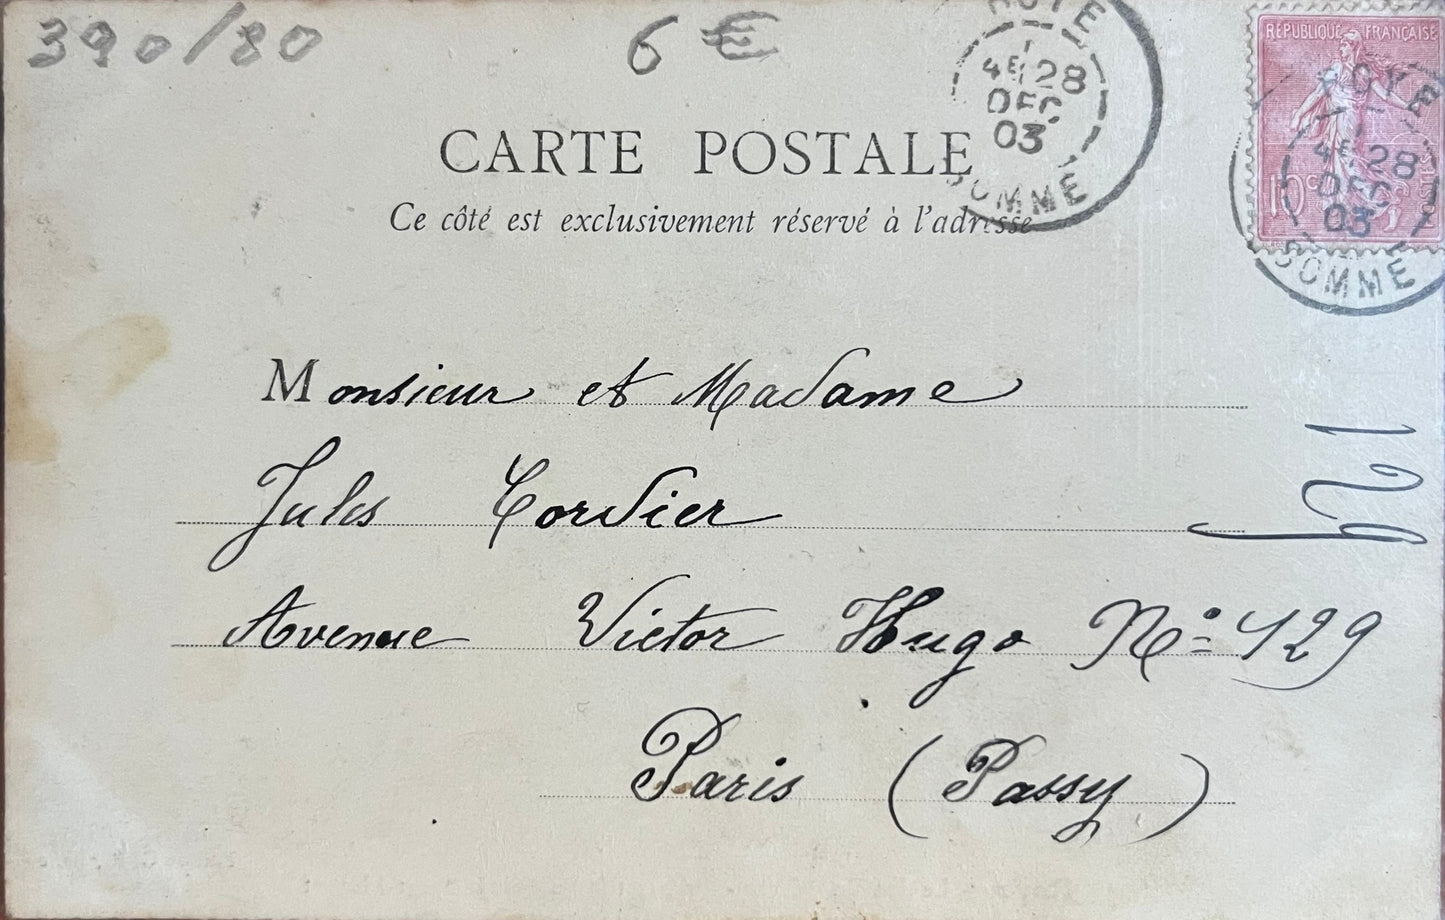 390/80
6 €
4E 28
DEC
03
SOMME
REPUBLIQUE FRANÇAISE
4E 28
DEC
03
10
SOMME
CARTE POSTALE
Ce côté est exclusivement réservé à l'adresse
Monsieur et Madame
Jules Cordier
Avenue Victor Hugo No 129
Paris (Passy)